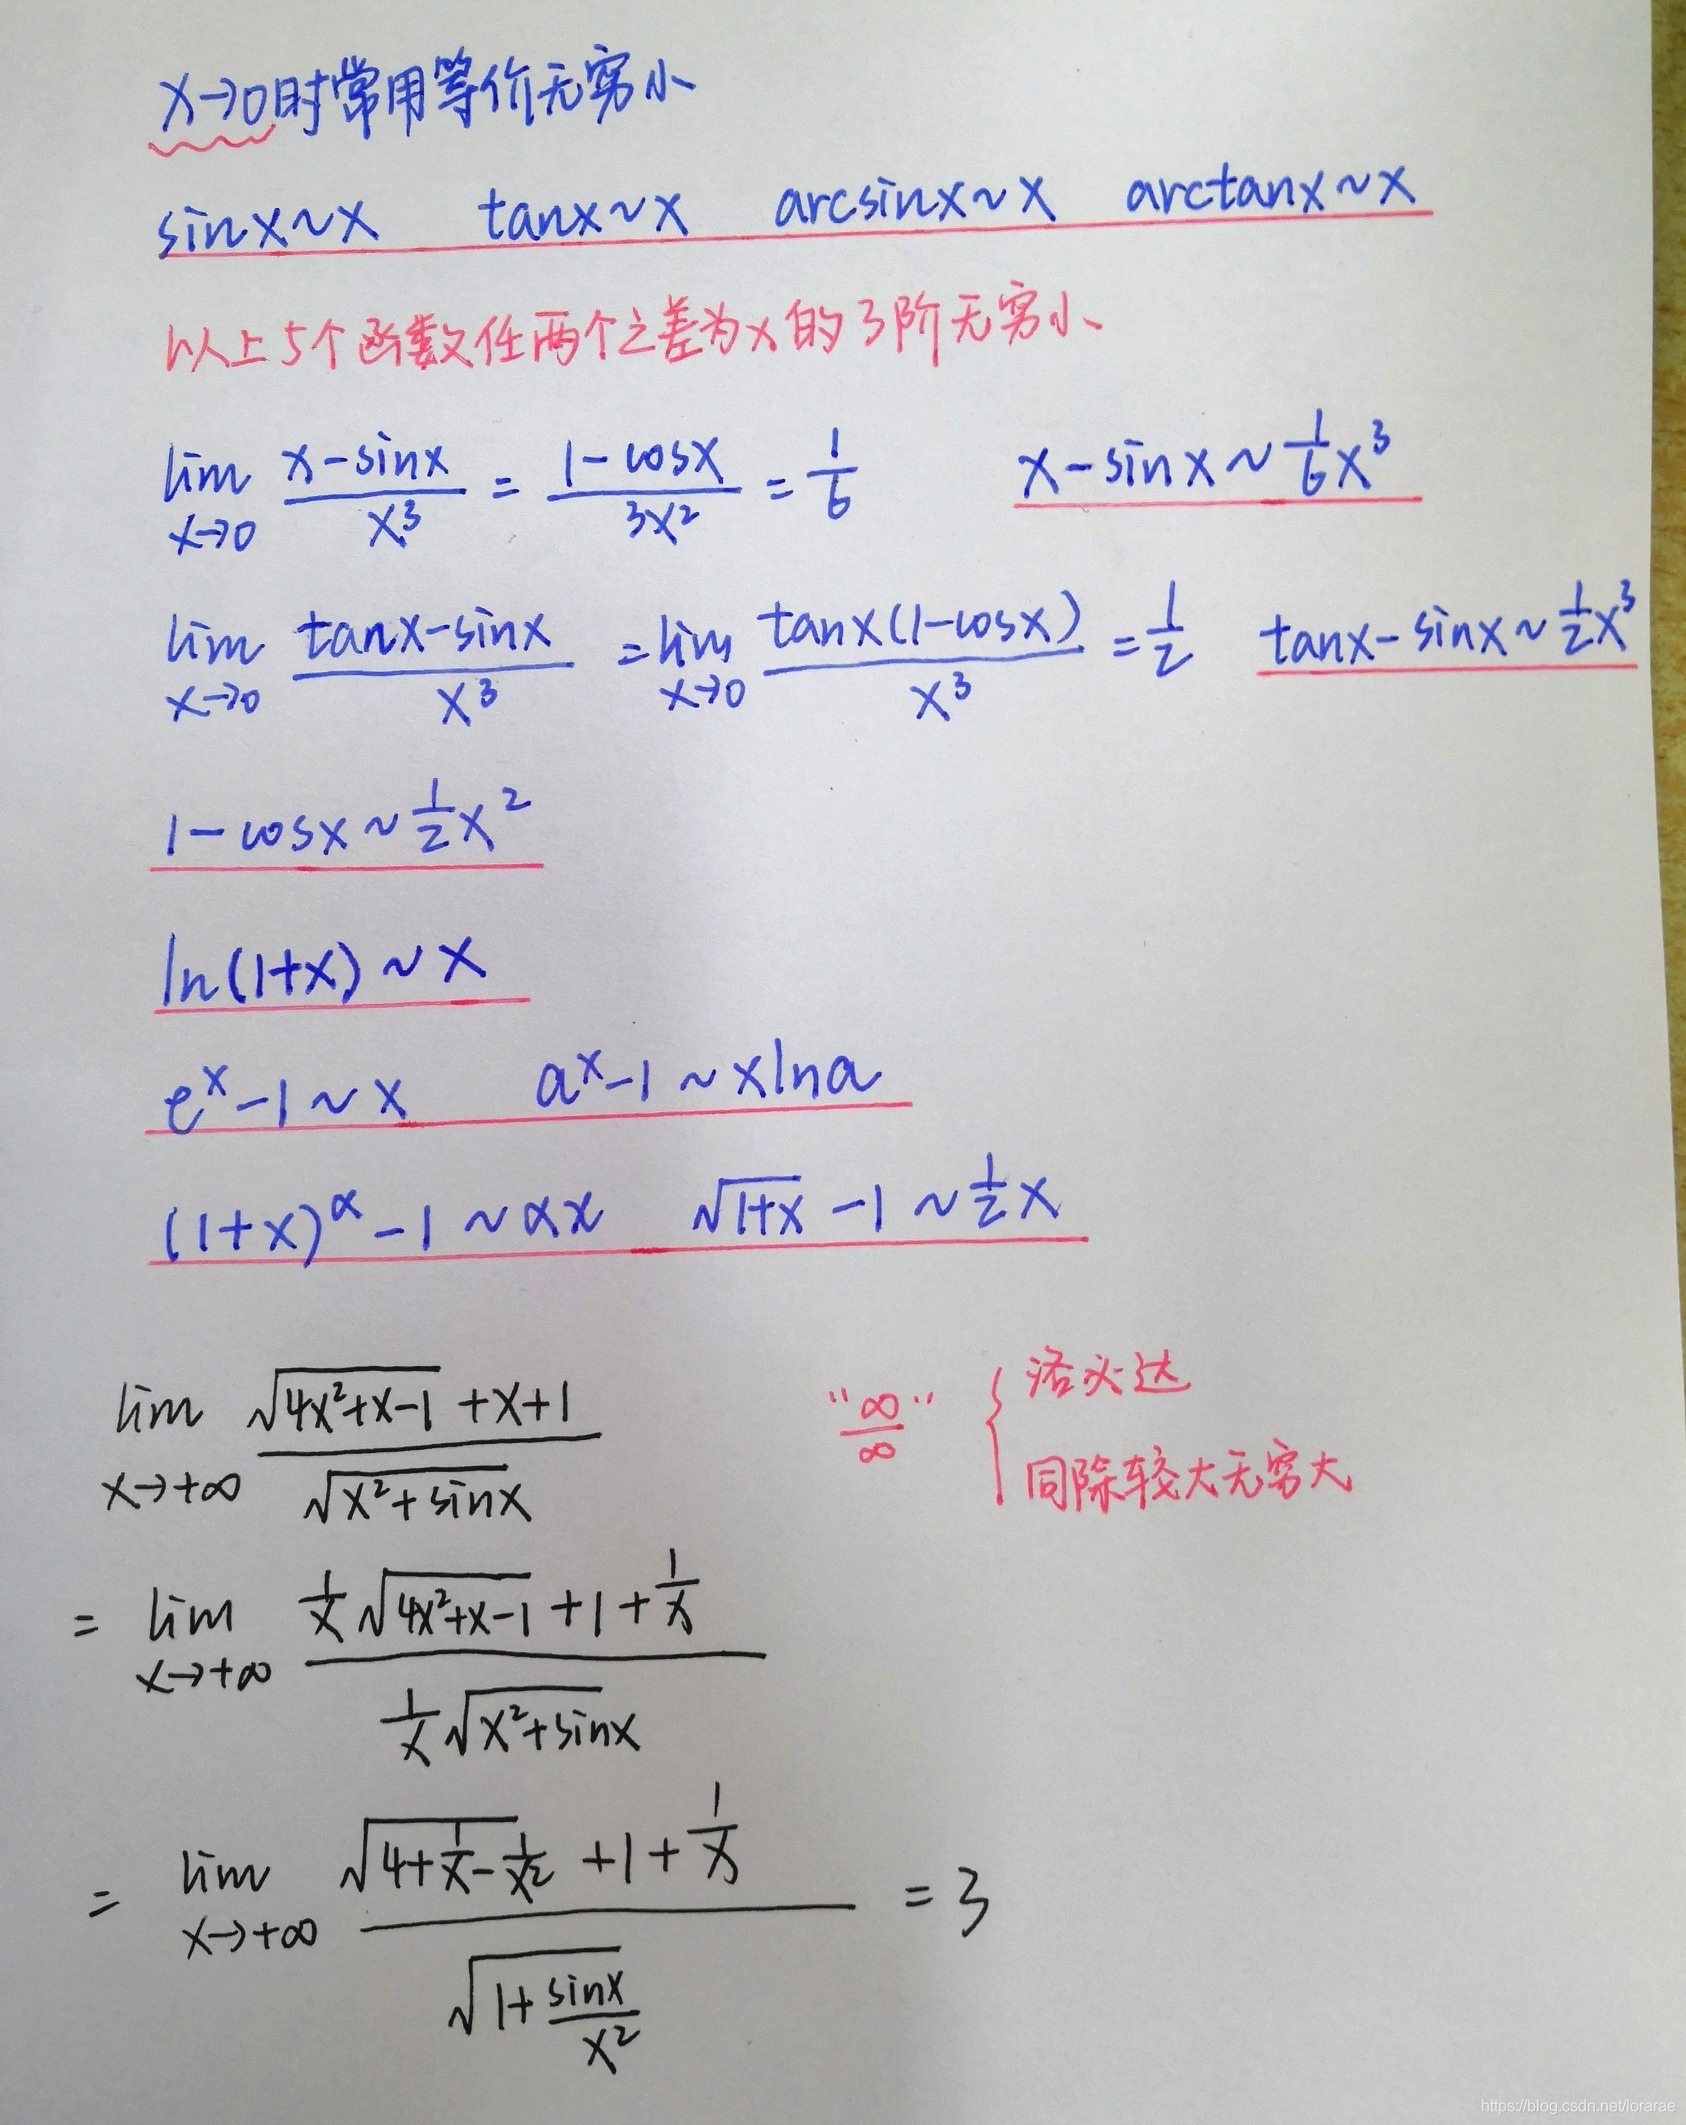 x→0时常用等价无穷小
sinx~x tanx~x arcsinx~x arctanx~x
以上5个函数任两个之差为x的3阶无穷小
lim x→0 (x-sinx)/x³ = (1-cosx)/3x² = 1/6 x-sinx~1/6x³
lim x→0 (tanx-sinx)/x³ = lim x→0 tanx(1-cosx)/x³ = 1/2 tanx-sinx~1/2x³
1-cosx~1/2x²
ln(1+x)~x
eˣ-1~x aˣ-1~xlna
(1+x)^α-1~αx √(1+x)-1~1/2x
lim x→+∞ (√(4x²+x-1)+x+1)/√(x²+sinx) "∞/∞" { 洛必达
同除较大无穷大
= lim x→+∞ (1/x√(4x²+x-1)+1+1/x)/(1/x√(x²+sinx))
= lim x→+∞ (√(4+1/x-1/x²)+1+1/x)/√(1+sinx/x²) = 3
https://blog.csdn.net/lorarae